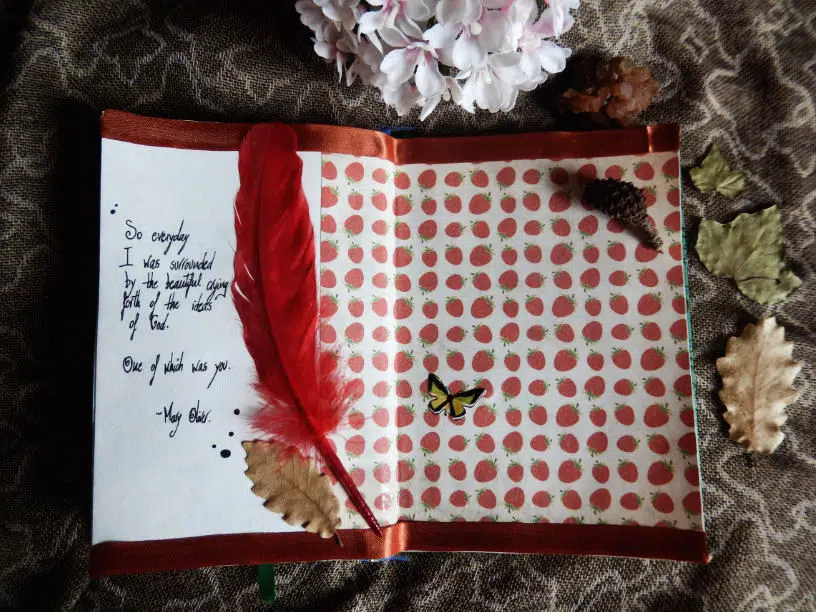 So everyday
I was surrounded
by the beautiful crying
forth of the ideas
of God.
One of which was you.
~Mary Oliver.